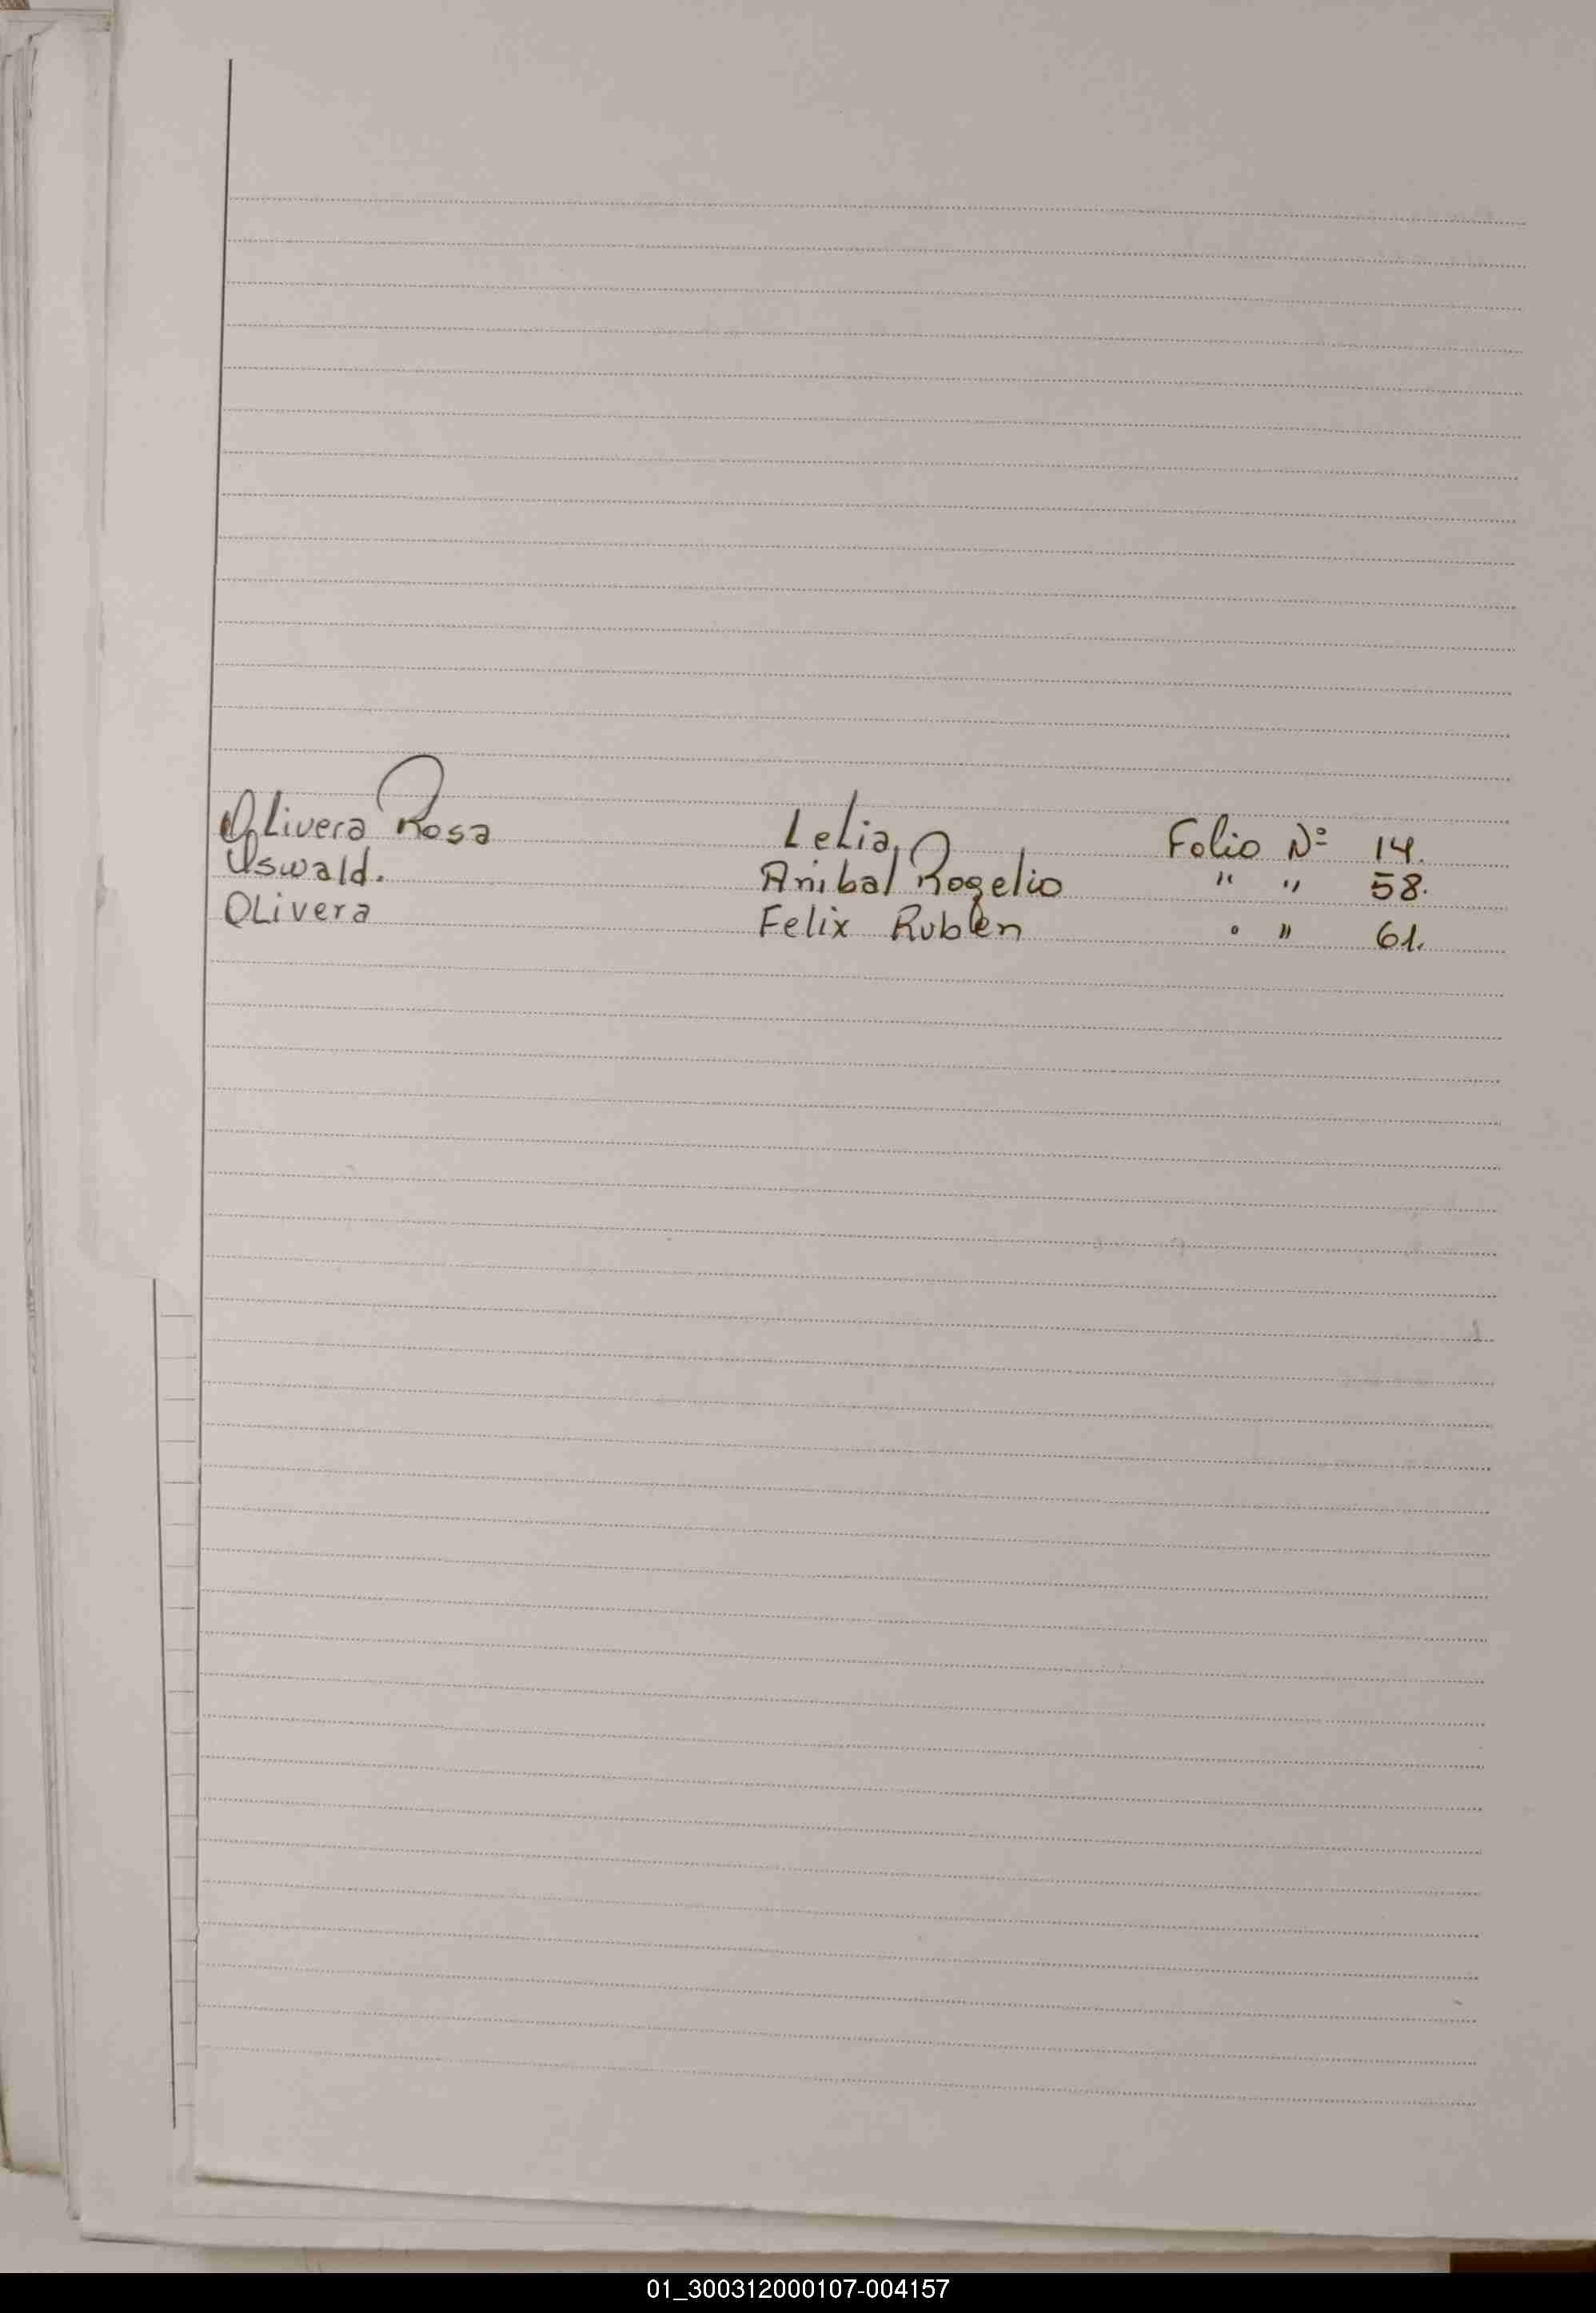 Olivera Rosa Lelia Folio Nº 14.
Oswald. Anibal Rogelio " " 58.
Olivera Felix Rubén " " 61.
01_300312000107-004157